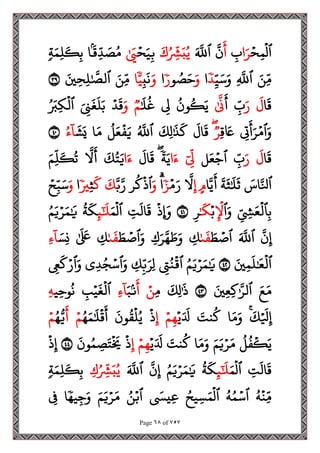 ٱلۡمِحۡرَابِ أَنَّ ٱللَّهَ يُبَشِّرُكَ بِيَحۡيَىٰ مُصَدِّقَۢا بِكَلِمَةٖ
مِّنَ ٱللَّهِ وَسَيِّدٗا وَحَصُورٗا وَنَبِيّٗا مِّنَ ٱلصَّٰلِحِينَ ٣٩
قَالَ رَبِّ أَنَّىٰ يَكُونُ لِي غُلَٰمٞ وَقَدۡ بَلَغَنِيَ ٱلۡكِبَرُ
وَٱمۡرَأَتِي عَاقِرٞۖ قَالَ كَذَٰلِكَ ٱللَّهُ يَفۡعَلُ مَا يَشَآءُ ٤٠
قَالَ رَبِّ ٱجۡعَل لِّيٓ ءَايَةٗۖ قَالَ ءَايَتُكَ أَلَّا تُكَلِّمَ
ٱلنَّاسَ ثَلَٰثَةَ أَيَّامٍ إِلَّا رَمۡزٗاۗ وَٱذۡكُر رَّبَّكَ كَثِيرٗا وَسَبِّحۡ
بِٱلۡعَشِيِّ وَٱلۡإِبۡكَٰرِ ٤١ وَإِذۡ قَالَتِ ٱلۡمَلَٰٓئِكَةُ يَٰمَرۡيَمُ
إِنَّ ٱللَّهَ ٱصۡطَفَىٰكِ وَطَهَّرَكِ وَٱصۡطَفَىٰكِ عَلَىٰ نِسَآءِ
ٱلۡعَٰلَمِينَ ٤٢ يَٰمَرۡيَمُ ٱقۡنُتِي لِرَبِّكِ وَٱسۡجُدِي وَٱرۡكَعِي
مَعَ ٱلرَّٰكِعِينَ ٤٣ ذَٰلِكَ مِنۡ أَنۢبَآءِ ٱلۡغَيۡبِ نُوحِيهِ
إِلَيۡكَۚ وَمَا كُنتَ لَدَيۡهِمۡ إِذۡ يُلۡقُونَ أَقۡلَٰمَهُمۡ أَيُّهُمۡ
يَكۡفُلُ مَرۡيَمَ وَمَا كُنتَ لَدَيۡهِمۡ إِذۡ يَخۡتَصِمُونَ ٤٤ إِذۡ
قَالَتِ ٱلۡمَلَٰٓئِكَةُ يَٰمَرۡيَمُ إِنَّ ٱللَّهَ يُبَشِّرُكِ بِكَلِمَةٖ
مِّنۡهُ ٱسۡمُهُ ٱلۡمَسِيحُ عِيسَى ٱبۡنُ مَرۡيَمَ وَجِيهٗا فِي
Page 68 of 757